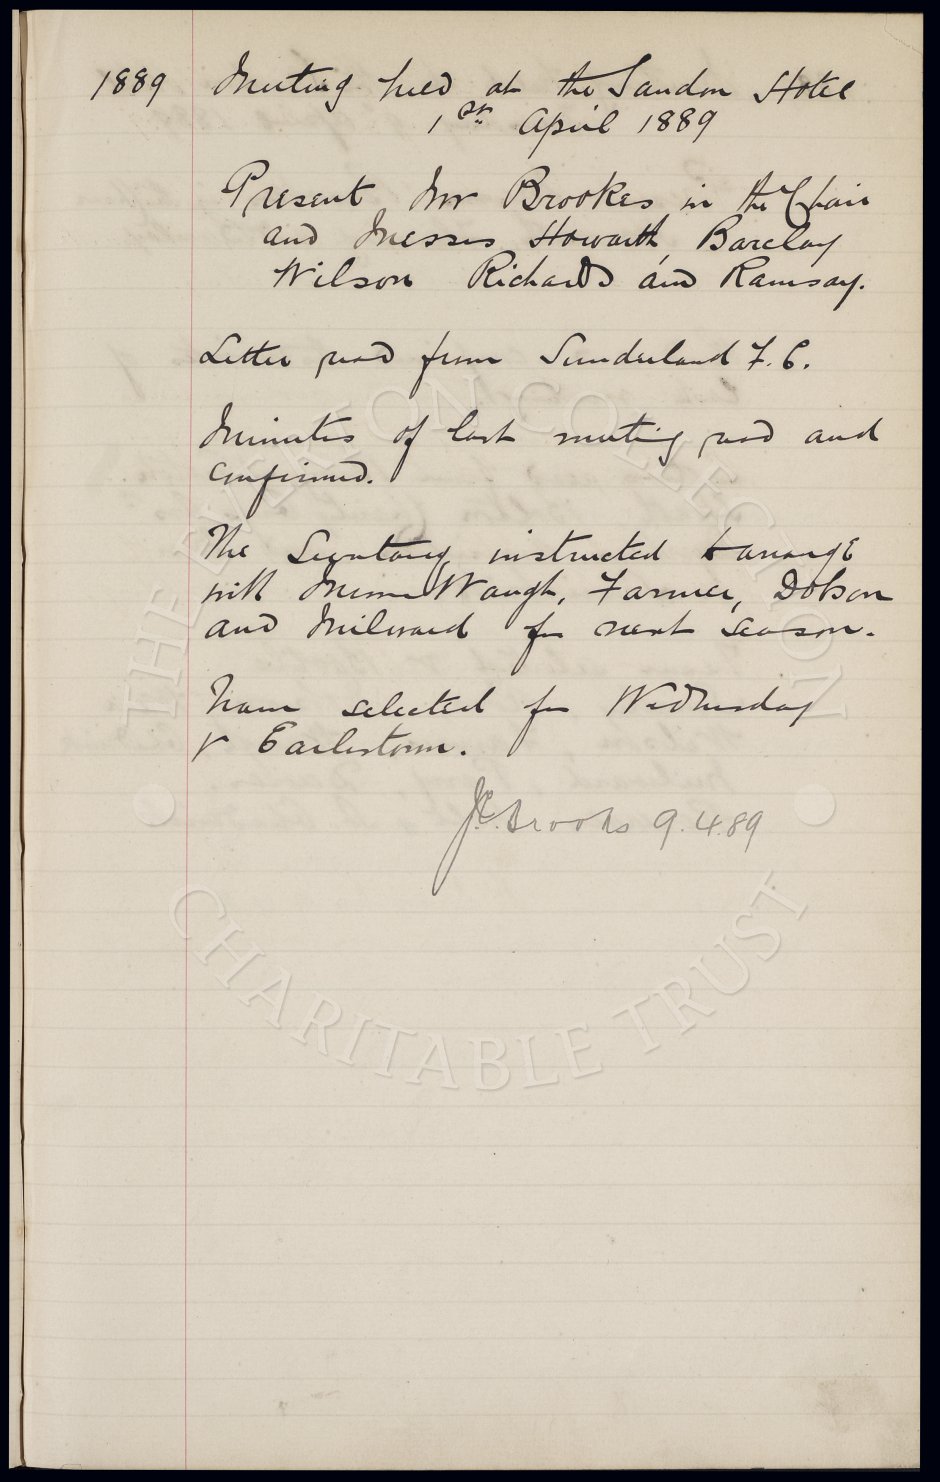 1889 Meeting held at the Sandon Hotel
1st April 1889
Present Mr Brookes in the Chair
and Messrs Howarth, Barclay
Wilson Richards and Ramsay.
Letter read from Sunderland F.C.
Minutes of last meeting read and
confirmed.
The Secretary instructed to arrange
with Messrs Waugh, Farmer, Dobson
and Milward for next season.
Team selected for Wednesday
v Earlestown.
J.C. Brooks 9.4.89
THE EVERTON COLLECTION
CHARITABLE TRUST